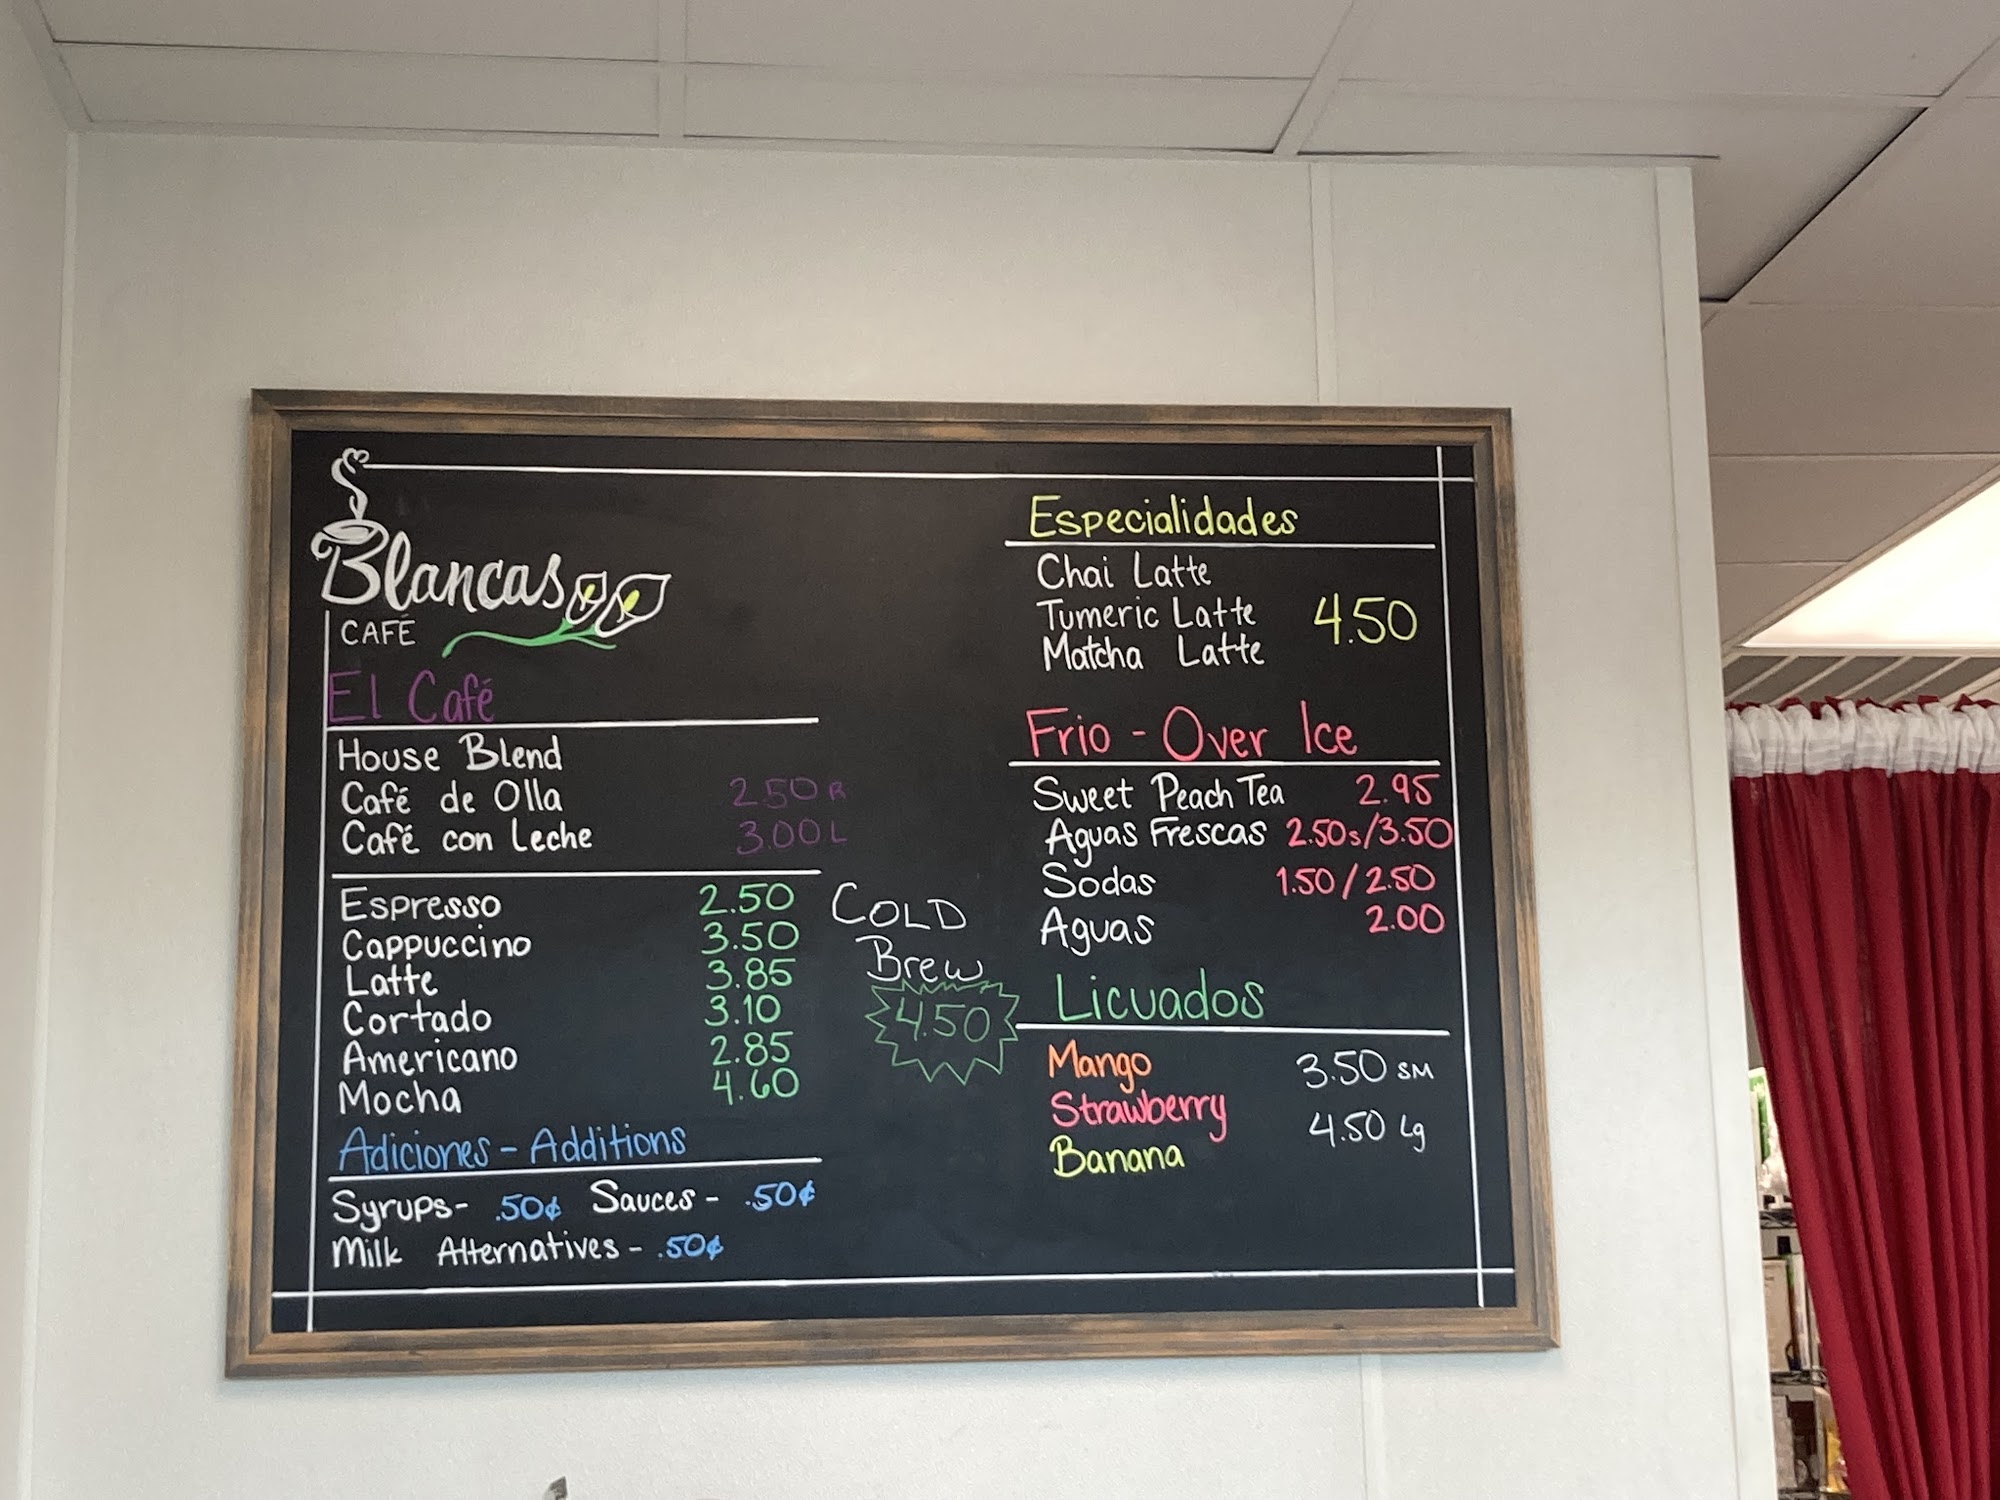 Blancas
CAFÉ
El Café
House Blend
Café de Olla 2.50 R
Café con Leche 3.00 L
Espresso 2.50
Cappuccino 3.50
Latte 3.85
Cortado 3.10
Americano 2.85
Mocha 4.60
Adiciones - Additions
Syrups- .50¢ Sauces - .50¢
Milk Alternatives - .50¢
COLD
Brew
4.50
Especialidades
Chai Latte
Tumeric Latte 4.50
Matcha Latte
Frio - Over Ice
Sweet Peach Tea 2.95
Aguas Frescas 2.50s/3.50
Sodas 1.50/2.50
Aguas 2.00
Licuados
Mango 3.50 SM
Strawberry 4.50 Lg
Banana